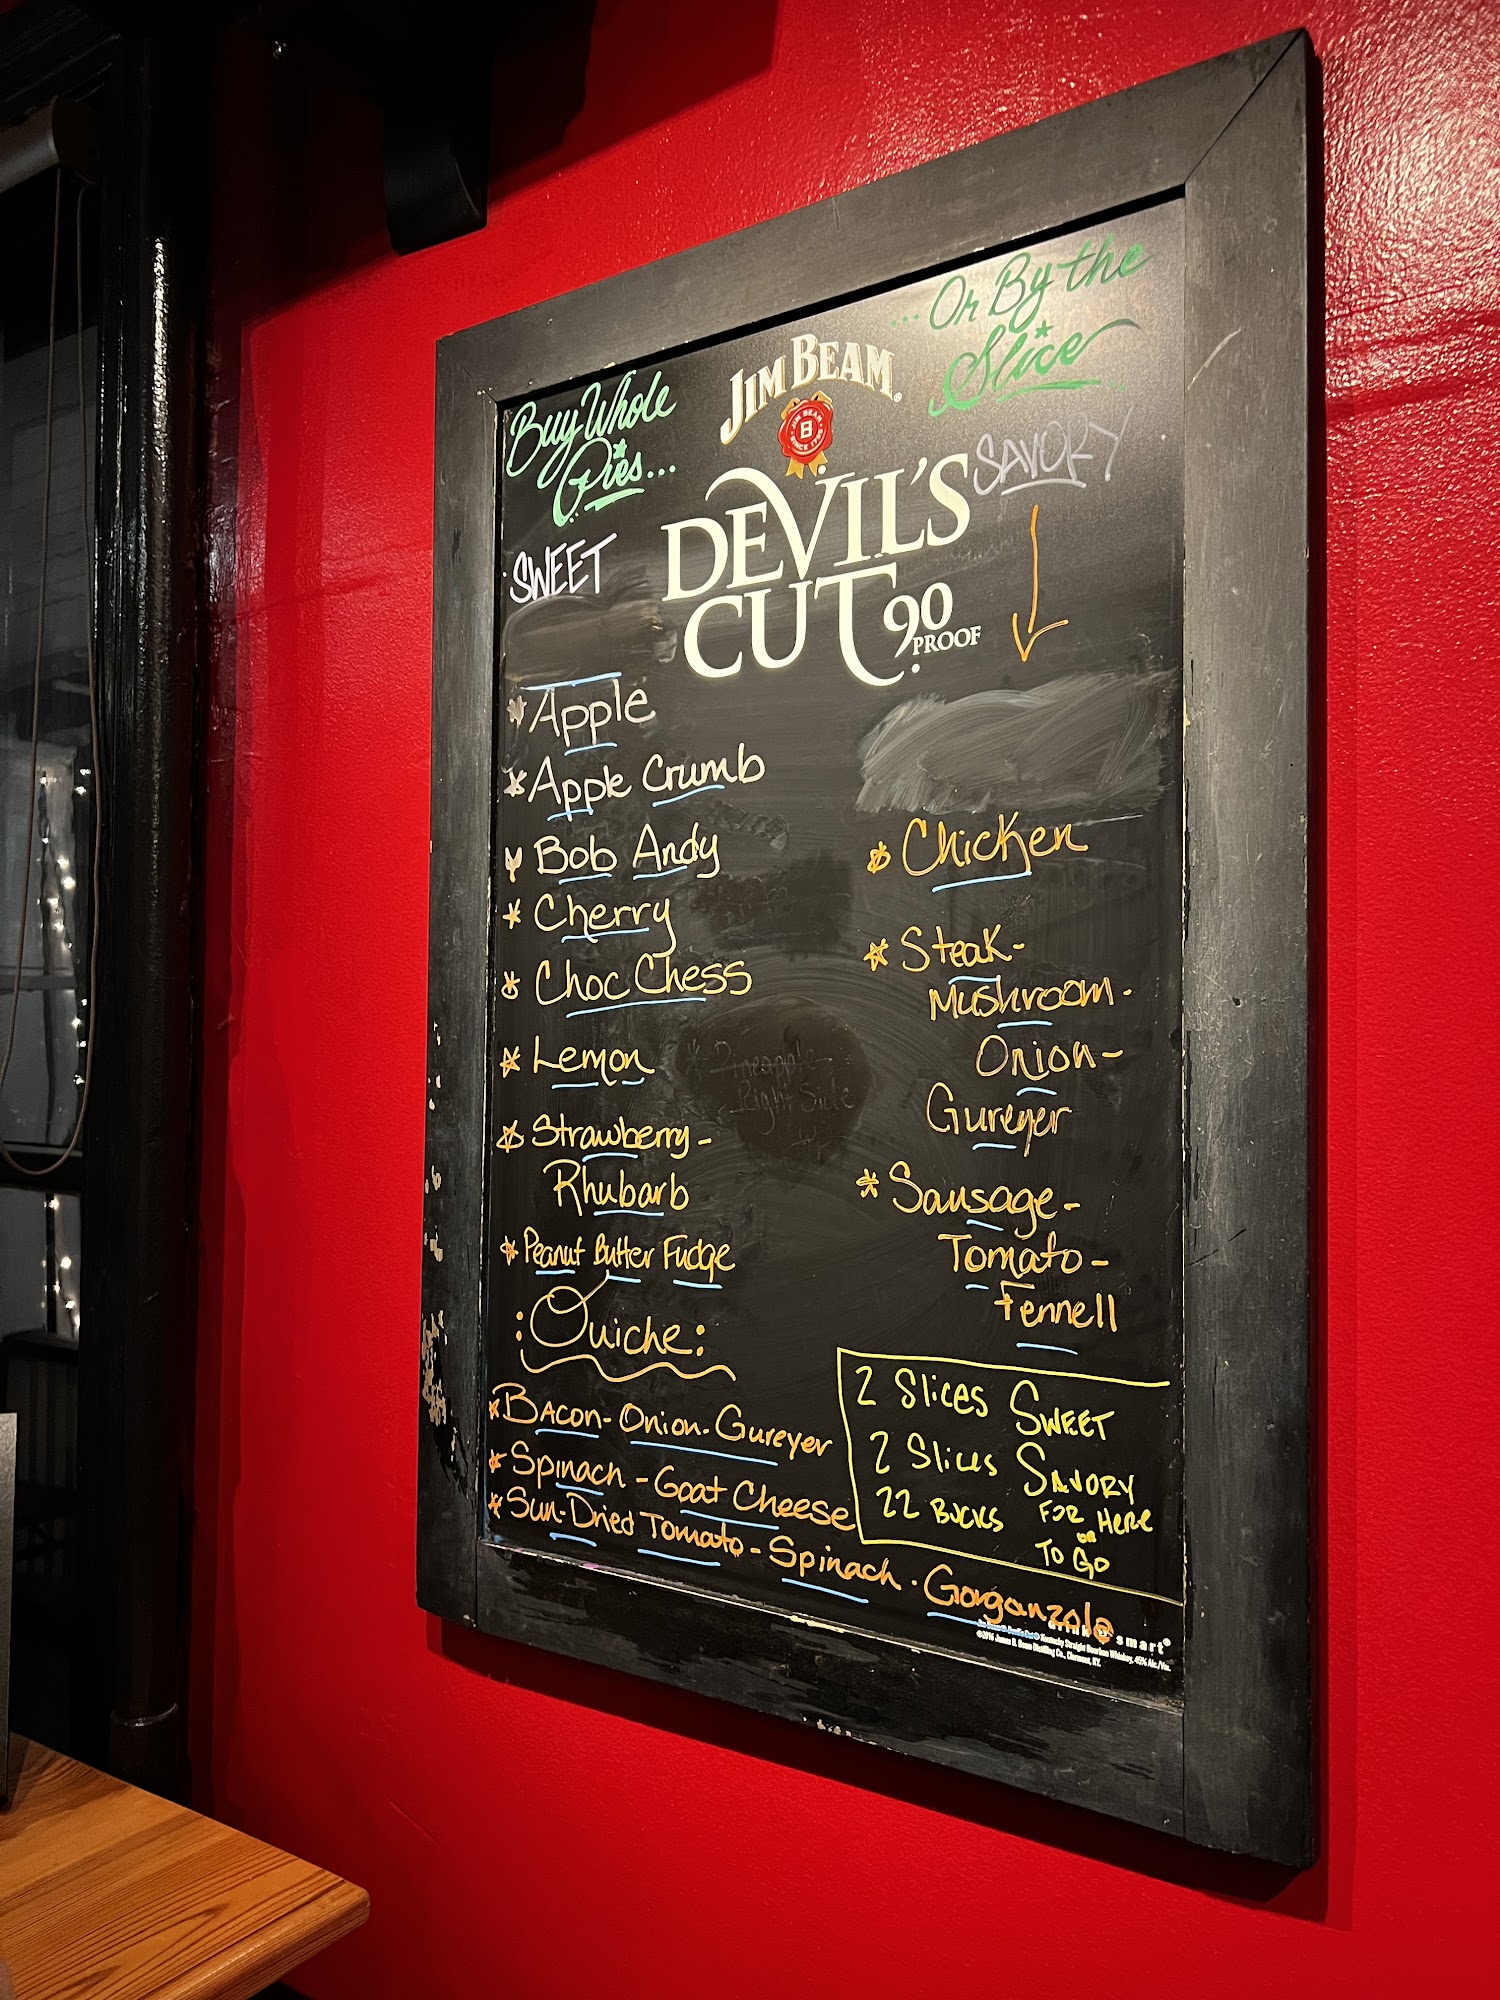 Buy Whole
Pies...
... Or By the
Slice
JIM BEAM
JIM BEAM
B
DEVIL'S
CUT 90
PROOF
SWEET
Apple
Apple Crumb
Bob Andy
Cherry
Choc Chess
Lemon
Strawberry-
Rhubarb
Peanut Butter Fudge
Pineapple
Right Side
:Quiche:
Bacon-Onion-Gureyer
Spinach-Goat Cheese
Sun-Dried Tomato-Spinach-Gorgonzola
SAVORY
Chicken
Steak-
Mushroom-
Onion-
Gureyer
Sausage-
Tomato-
Fennell
2 Slices Sweet
2 Slices Savory
22 Bucks For Here
or
To Go
smart®
©2016 James B. Beam Distilling Co., Clermont, KY.